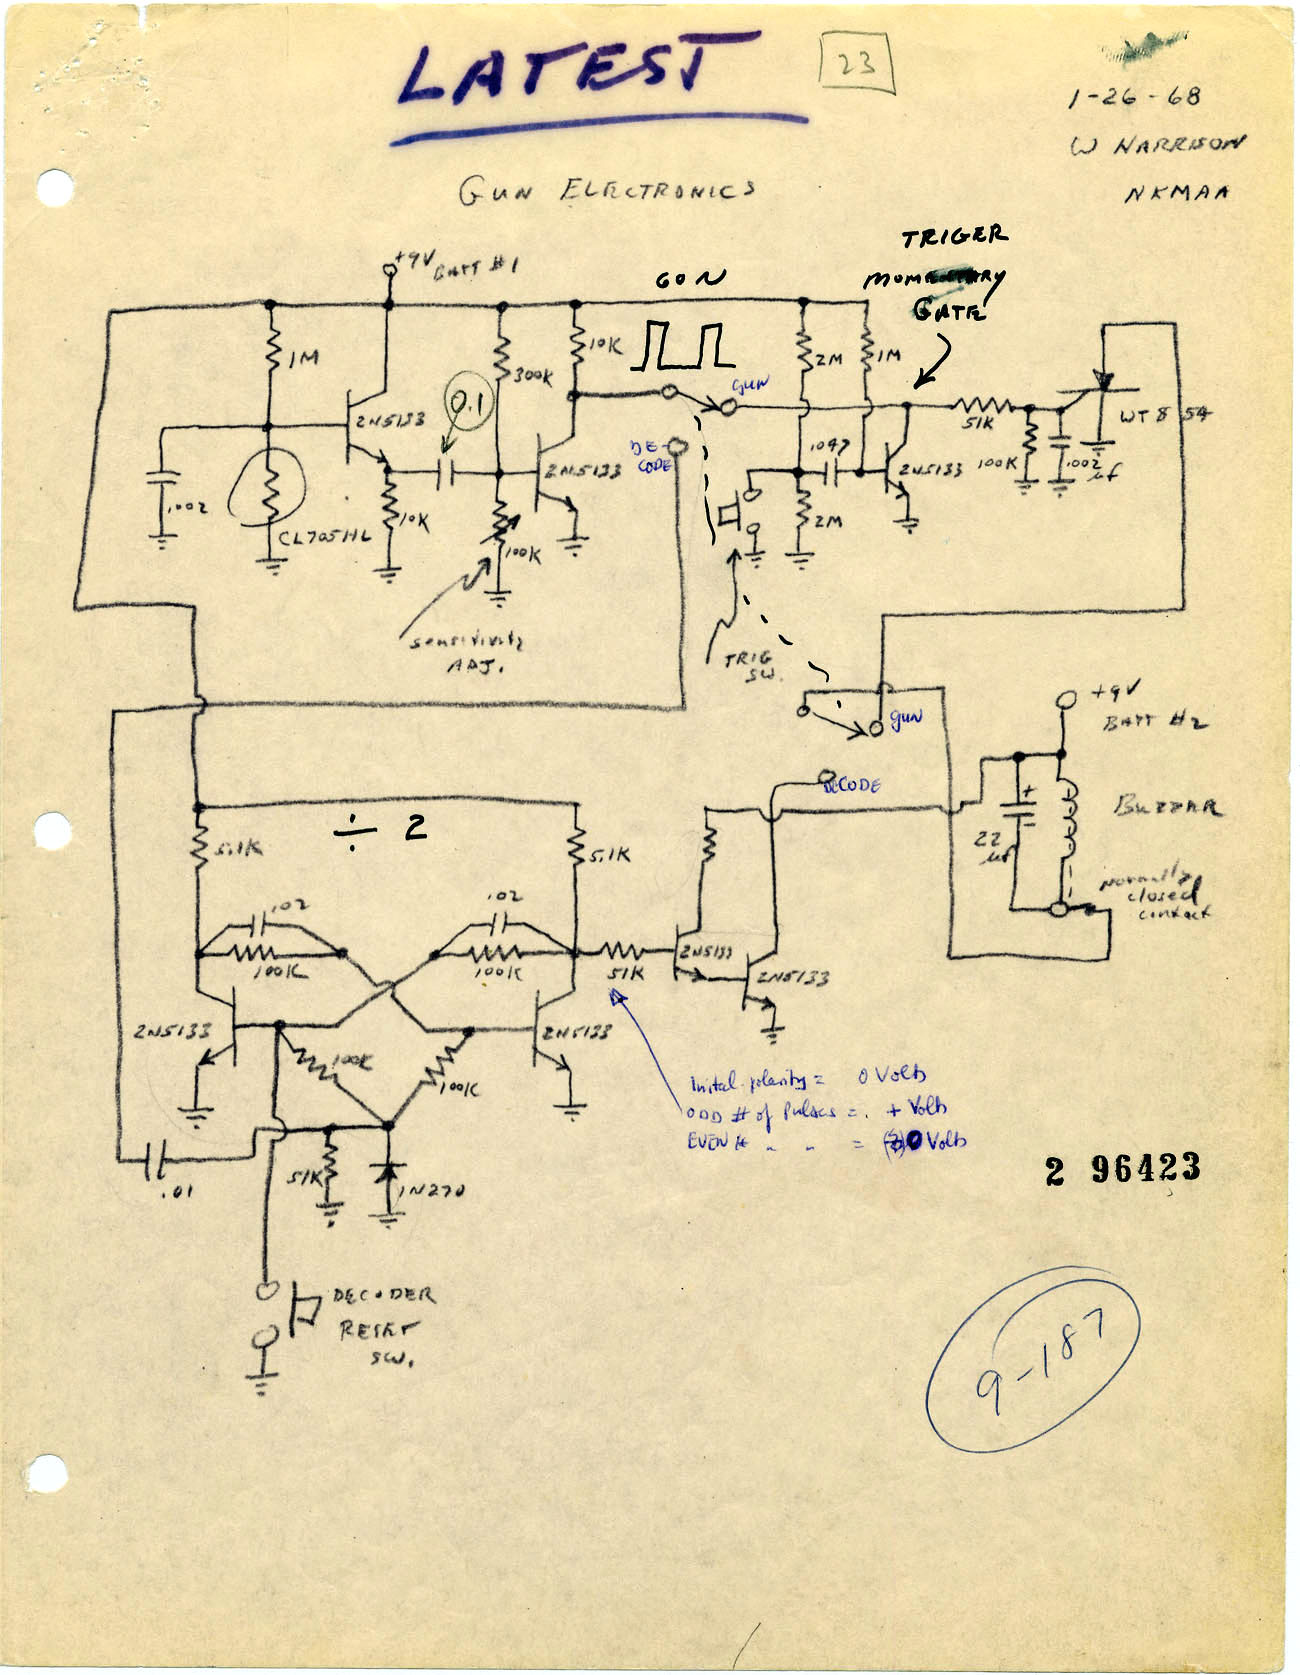 LATEST
23
1-26-68
W HARRISON
NKMAA
GUN ELECTRONICS
TRIGER
MOMENTARY
GATE
+9V
BATT #1
GUN
1M
300K
10K
2M
1M
0.1
2N5133
gun
DE-
CODE
51K
WT 8 54
.002
CL705HL
10K
2N5133
100K
.1047
2N5133
2M
100K
.002
uf
sensitivity
ADJ.
TRIG
SW.
gun
+9V
BATT #2
DECODE
÷ 2
5.1K
5.1K
22
uf
BUZZAR
normally
closed
contact
.02
100K
.02
100K
51K
2N5133
2N5133
2N5133
2N5133
100K
100K
Inital polarity = 0 Volts
ODD # of Pulses = + Volts
EVEN # " " = 0 Volts
2 96423
.01
51K
1N270
DECODER
RESET
SW.
9-187